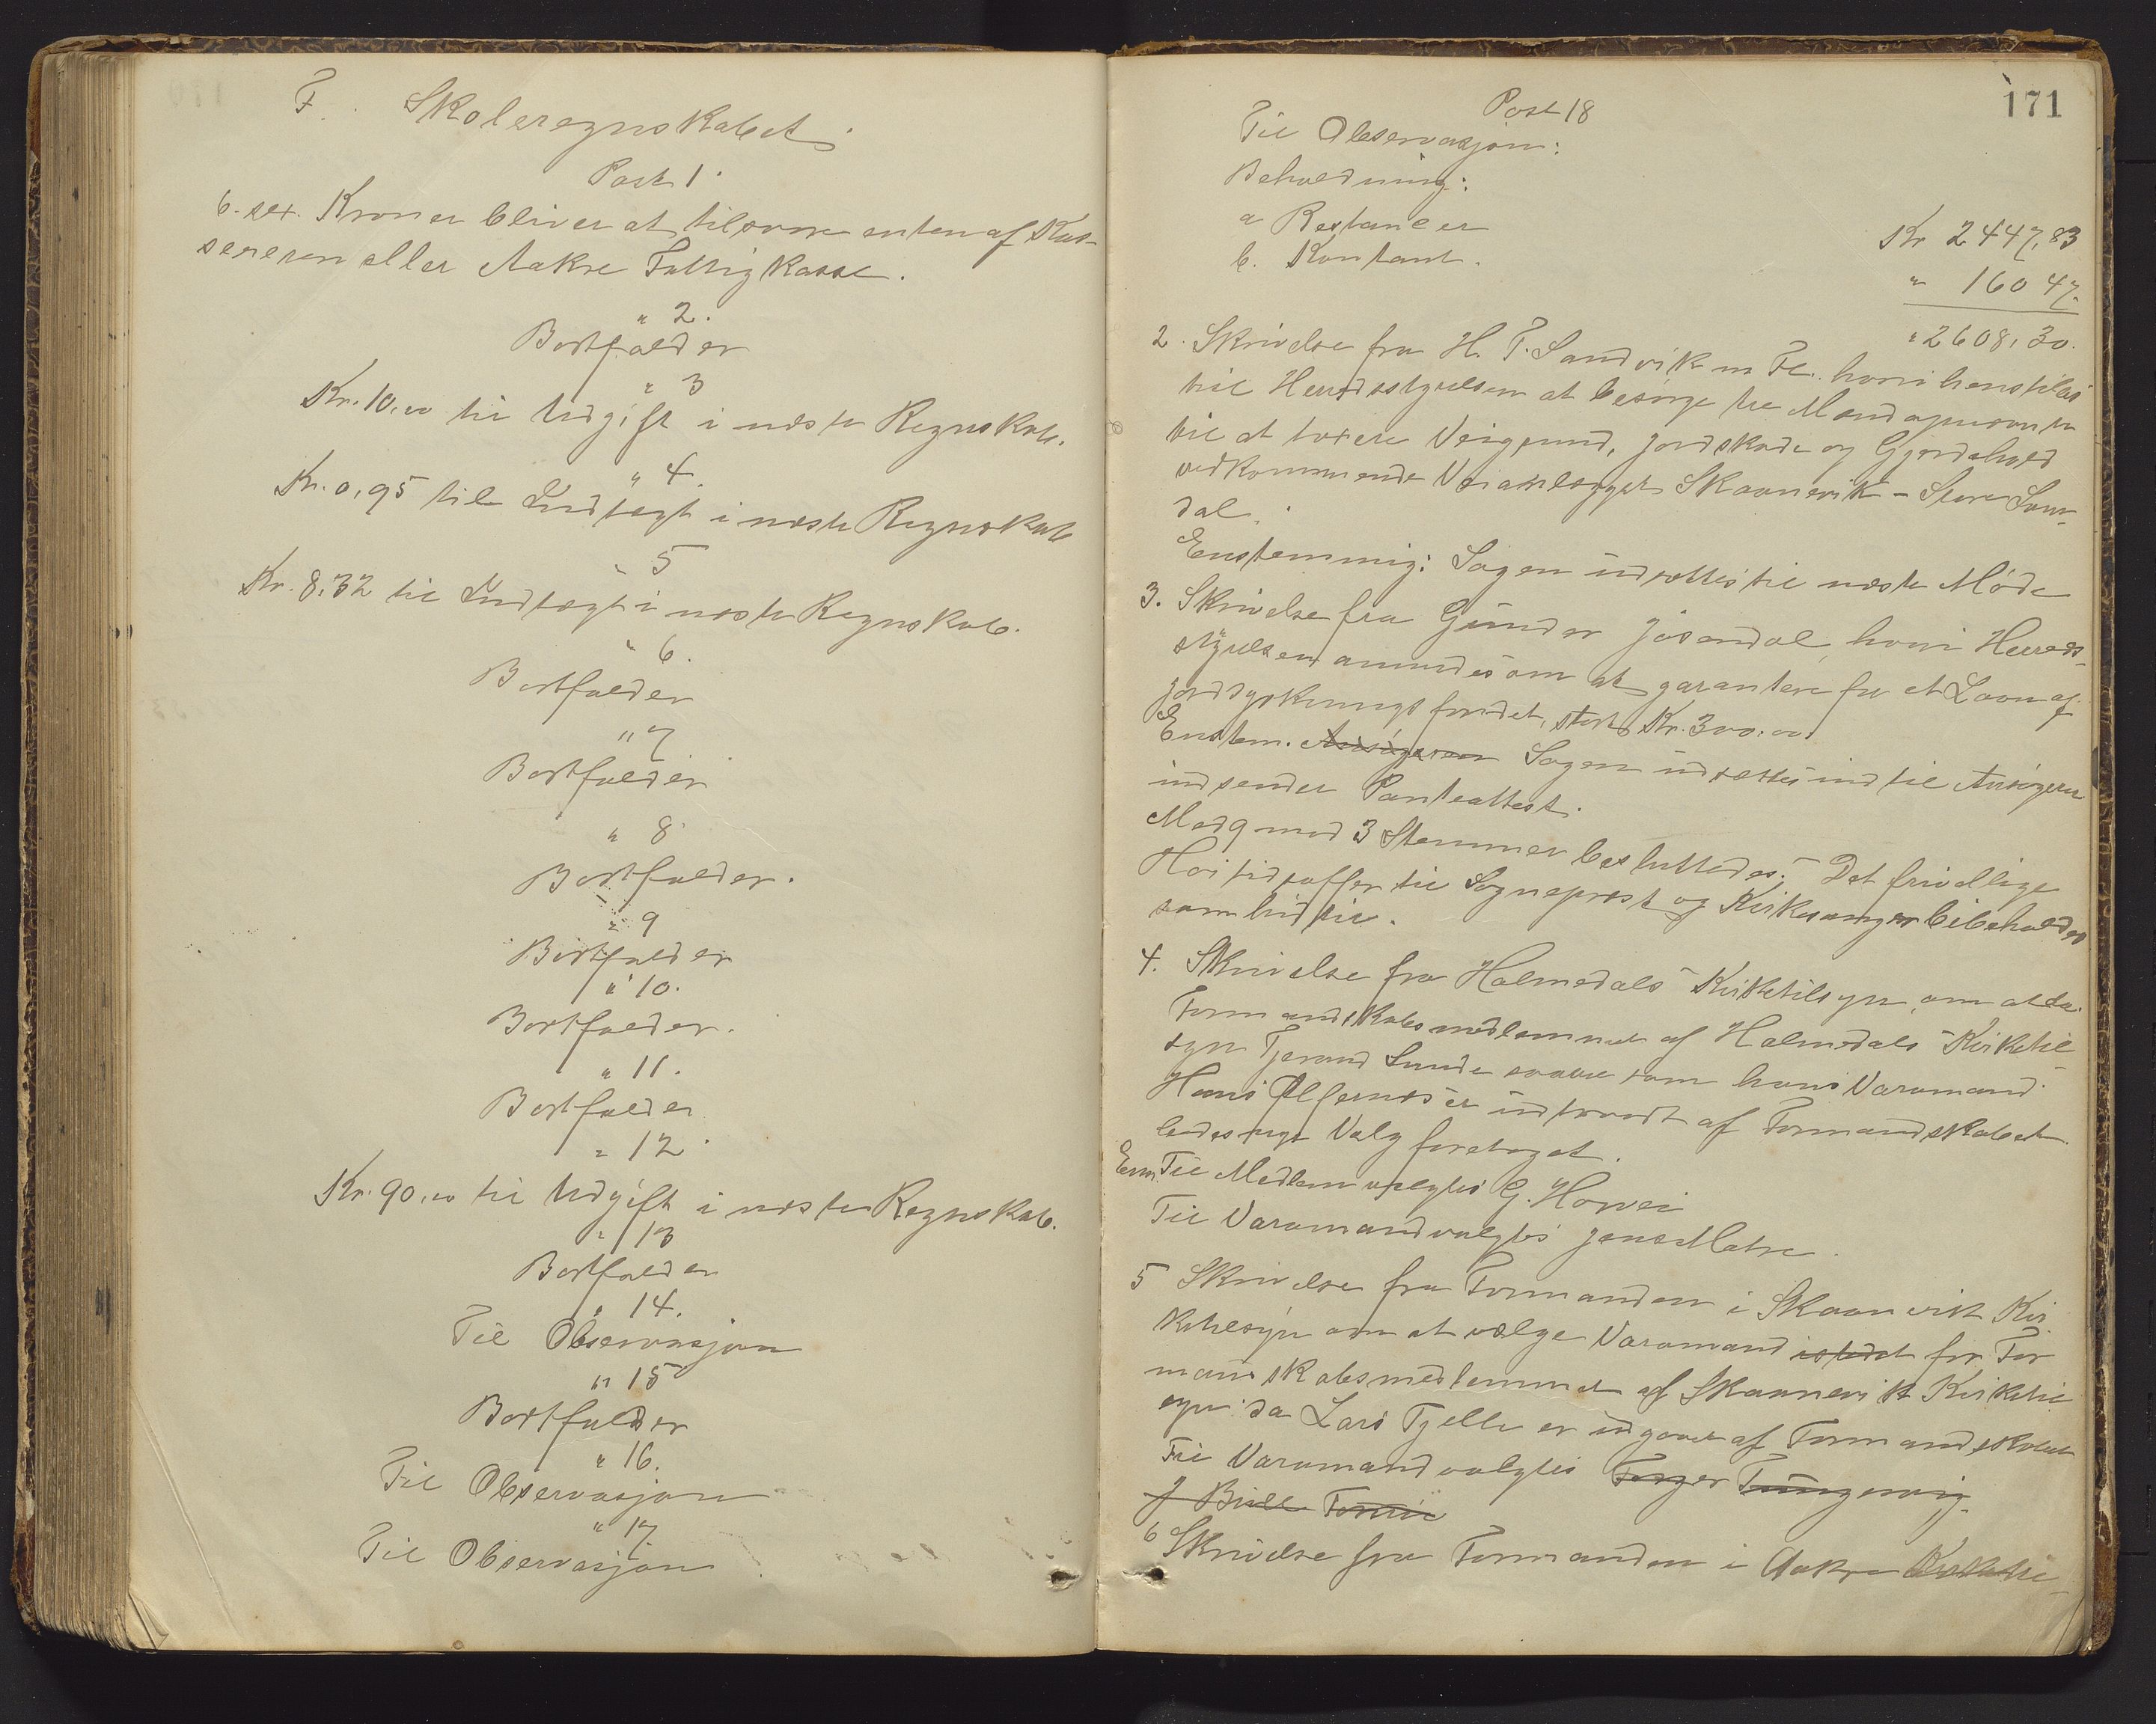 F. Skoleregnskabet
Post 1.
6. sex. Kroner bliver at tilsvare enten af Kas-
sereren eller Aakre Fattigkasse.
" 2.
Bortfalder
" 3
Kr. 10,00 til Udgift i næste Regnskab.
" 4.
Kr. 0,95 til Indtægt i næste Regnskab
" 5
Kr. 8,32 til Indtægt i næste Regnskab.
" 6.
Bortfalder
" 7
Bortfalder
" 8
Bortfalder.
" 9
Bortfalder
" 10.
Bortfalder.
" 11.
Bortfalder
" 12.
Kr. 90,00 til Udgift i næste Regnskab.
" 13
Bortfalder
" 14.
Til Observasjon
" 15
Bortfalder
" 16.
Til Observasjon
" 17.
Til Observasjon
171
Post 18
Til Observasjon:
Beholdning:
a Restancer Kr 2447,83
b. Kontant. " 160 47.
" 2608,30.
2. Skrivelse fra H. T. Sandvik m Fl. hvori henstilles
til Herredsstyrelsen at besørge tre Mænd opnævnte
til at taxere Veigrund, Jordskade og Gjerdehold
vedkommende Veianlægget Skaanevik - Store Saun-
dal.
Enstemmig: Sagen udsættes til næste Møde
3. Skrivelse fra Gunder Jösendal, hvori Herreds-
styrelsen anmodes om at garantere for et Laan af
Jorddyrkningsfondet, stort Kr. 300,00.
Enstem. Ansögeren Sagen udsættes indtil Ansögeren
indsender Panteattest.
Med 9 mod 3 Stemmer besluttedes: Det frivillige
Høitidsoffer til Sogneprest og Kirkesanger bibeholdes
som hidtil.
4. Skrivelse fra Holmedals Kirketilsyn, om at da
Formandskabsmedlemmet af Holmedals Kirketil-
syn Tjerand Lunde saavel som hans Varamand
Hans Ølfernes er udtraadt af Formandskabet
bedes nyt Valg foretaget.
Enm. Til Medlem valgtes G. Horvei
Til Varamand valgtes Jens Matre.
5 Skrivelse fra Formanden i Skaanevik Kir-
ketilsyn om at vælge Varamand istedet for For
mandskabsmedlemmet af Skaanevik Kirketil
syn da Lars Tjelle er udgaaet af Formandskabet
Til Varamand valgtes Torger Tungesvig
J Bull Tornøe
6 Skrivelse fra Formanden i Aakre Kirketil-